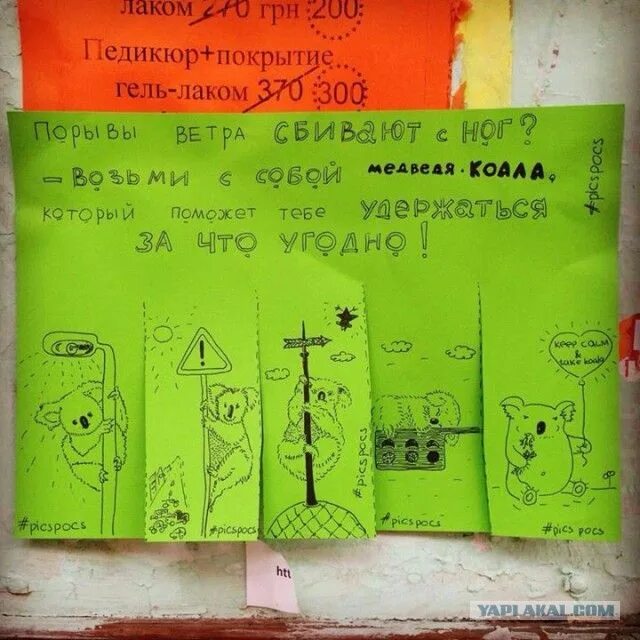 лаком 270 грн 200
Педикюр+покрытие
гель-лаком 370 300
Порывы ветра сбивают с ног?
– Возьми с собой медведя·коала,
который поможет тебе удержаться
за что угодно!
#picspocs
keep calm
&
take koala
#picspocs
#picspocs
#picspocs
#picspocs
#pics pocs
htt
YAPLAKAL.COM